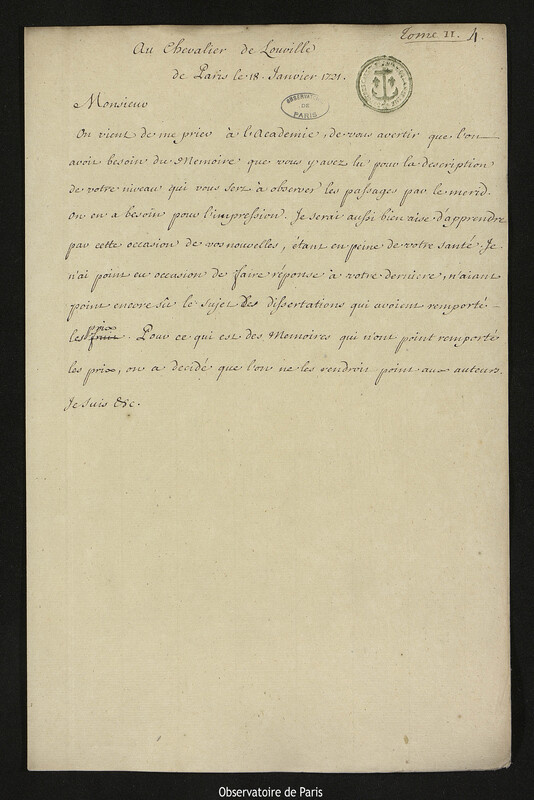 Tome II. 4.
Au Chevalier de Louville
de Paris le 18. Janvier 1721.
OBSERVATOIRE
DE
PARIS
Monsieur
On vient de me prier à l'Academie, de vous avertir que l'on
avoit besoin du Memoire que vous y avez lu pour la description
de votre niveau qui vous sert à observer les passages par le merid.
On en a besoin pour l'impression. Je serai aussi bien aise d'apprendre
par cette occasion de vos nouvelles, étant en peine de votre santé. Je
n'ai point eu occasion de faire réponse à votre derniere, n'aiant
point encore sû le sujet des dissertations qui avoient remporté
les fruit prix. Pour ce qui est des Memoires qui n'ont point remporté
les prix, on a decidé que l'on ne les rendroit point aux auteurs.
Je suis &c.
Observatoire de Paris